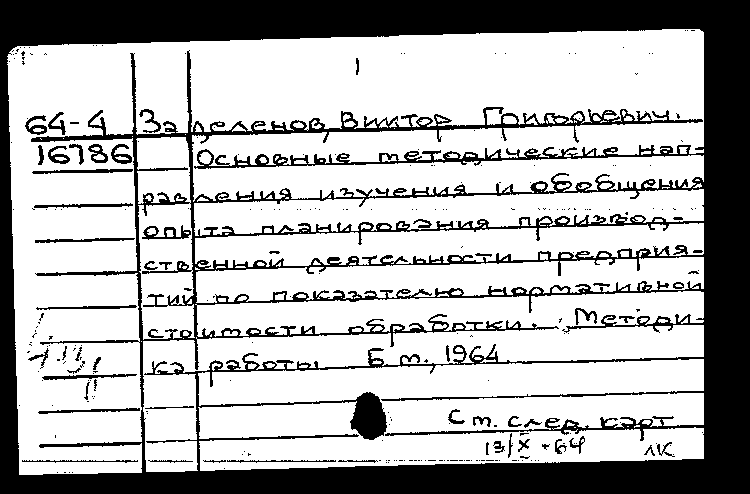 64-4 Заделенов, Виктор Григорьевич.
16786 Основные методические нап-
равления изучения и обобщения
опыта планирования производ-
ственной деятельности предприя-
тий по показателю нормативной
стоимости обработки. Методи-
ка работы Б. м., 1964.
См. след. карт
13/X-64 ЛК